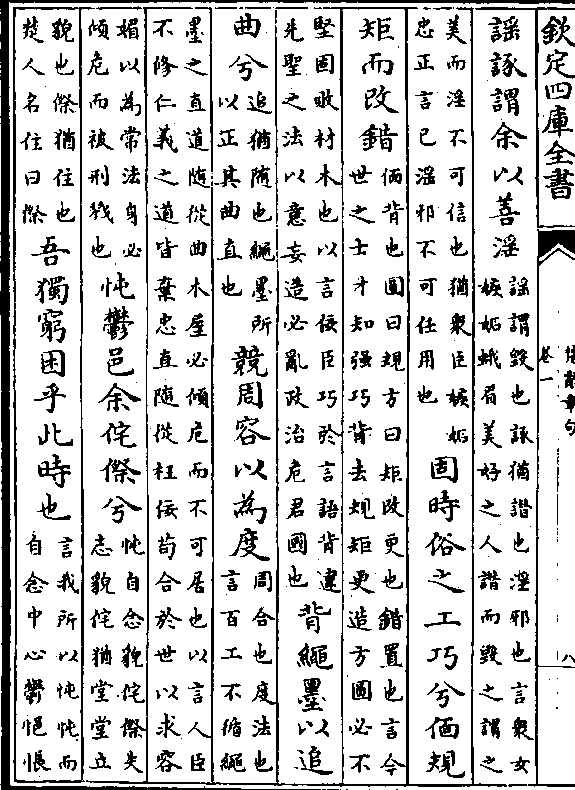 欽定四庫全書
楚辭章句
卷一
八
謡諑謂余以善淫
謡謂毁也諑猶譖也淫邪也言衆女
嫉妬蛾眉美好之人譖而毁之謂之
美而淫不可信也猶衆臣嫉妬
忠正言己淫邪不可任用也
固時俗之工巧兮偭規
矩而改錯
偭背也圓曰規方曰矩改更也錯置也言今
世之士才知强巧背去規矩更造方圓必不
堅固敗材木也以言佞臣巧於言語背違
先聖之法以意妄造必亂政治危君國也
背繩墨以追
曲兮
追猶隨也繩墨所
以正其曲直也
競周容以為度
周合也度法也
言百工不循繩
墨之直道隨從曲木屋必傾危而不可居也以言人臣
不修仁義之道皆棄忠直隨從枉佞苟合於世以求容
媚以為常法身必
傾危而被刑戮也
忳鬱邑余侘傺兮
忳自念貌侘傺失
志貌侘猶堂堂立
貌也傺猶住也
楚人名住曰傺
吾獨窮困乎此時也
言我所以忳忳而
自念中心鬱悒悵